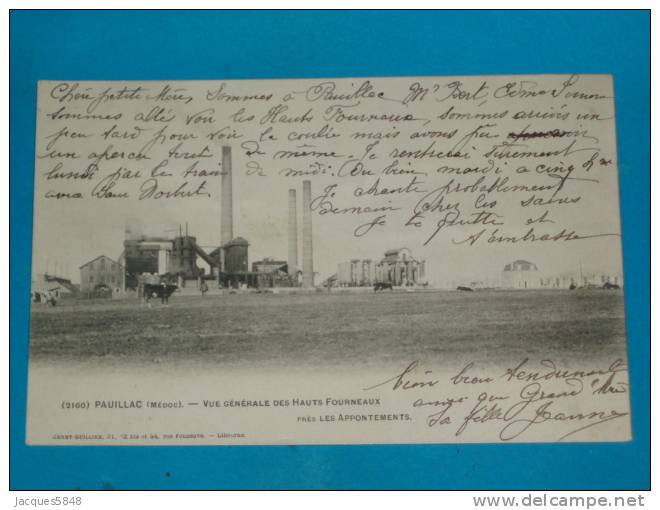 Chère petite Mère, Sommes à Pauillac Mr
sommes allés voir les Hauts Fourneaux, sommes arrivés un
peu tard pour voir la coulée mais avons pu
un aperçu tout de même. Je rentrerai sûrement
lundi par le train de midi. Ou bien mardi à cinq h
avec
Je chante probablement
demain chez les
Je te quitte et
t'embrasse
bien bien tendrement
ainsi que Grand Mère
ta fille Jeanne
(2160) PAUILLAC (MÉDOC). — VUE GÉNÉRALE DES HAUTS FOURNEAUX
PRÈS LES APPONTEMENTS.
HENRY GUILLIER, et 54, RUE FONNEUVE. — LIBOURNE.
Jacques5848
http://www.delcampe.net